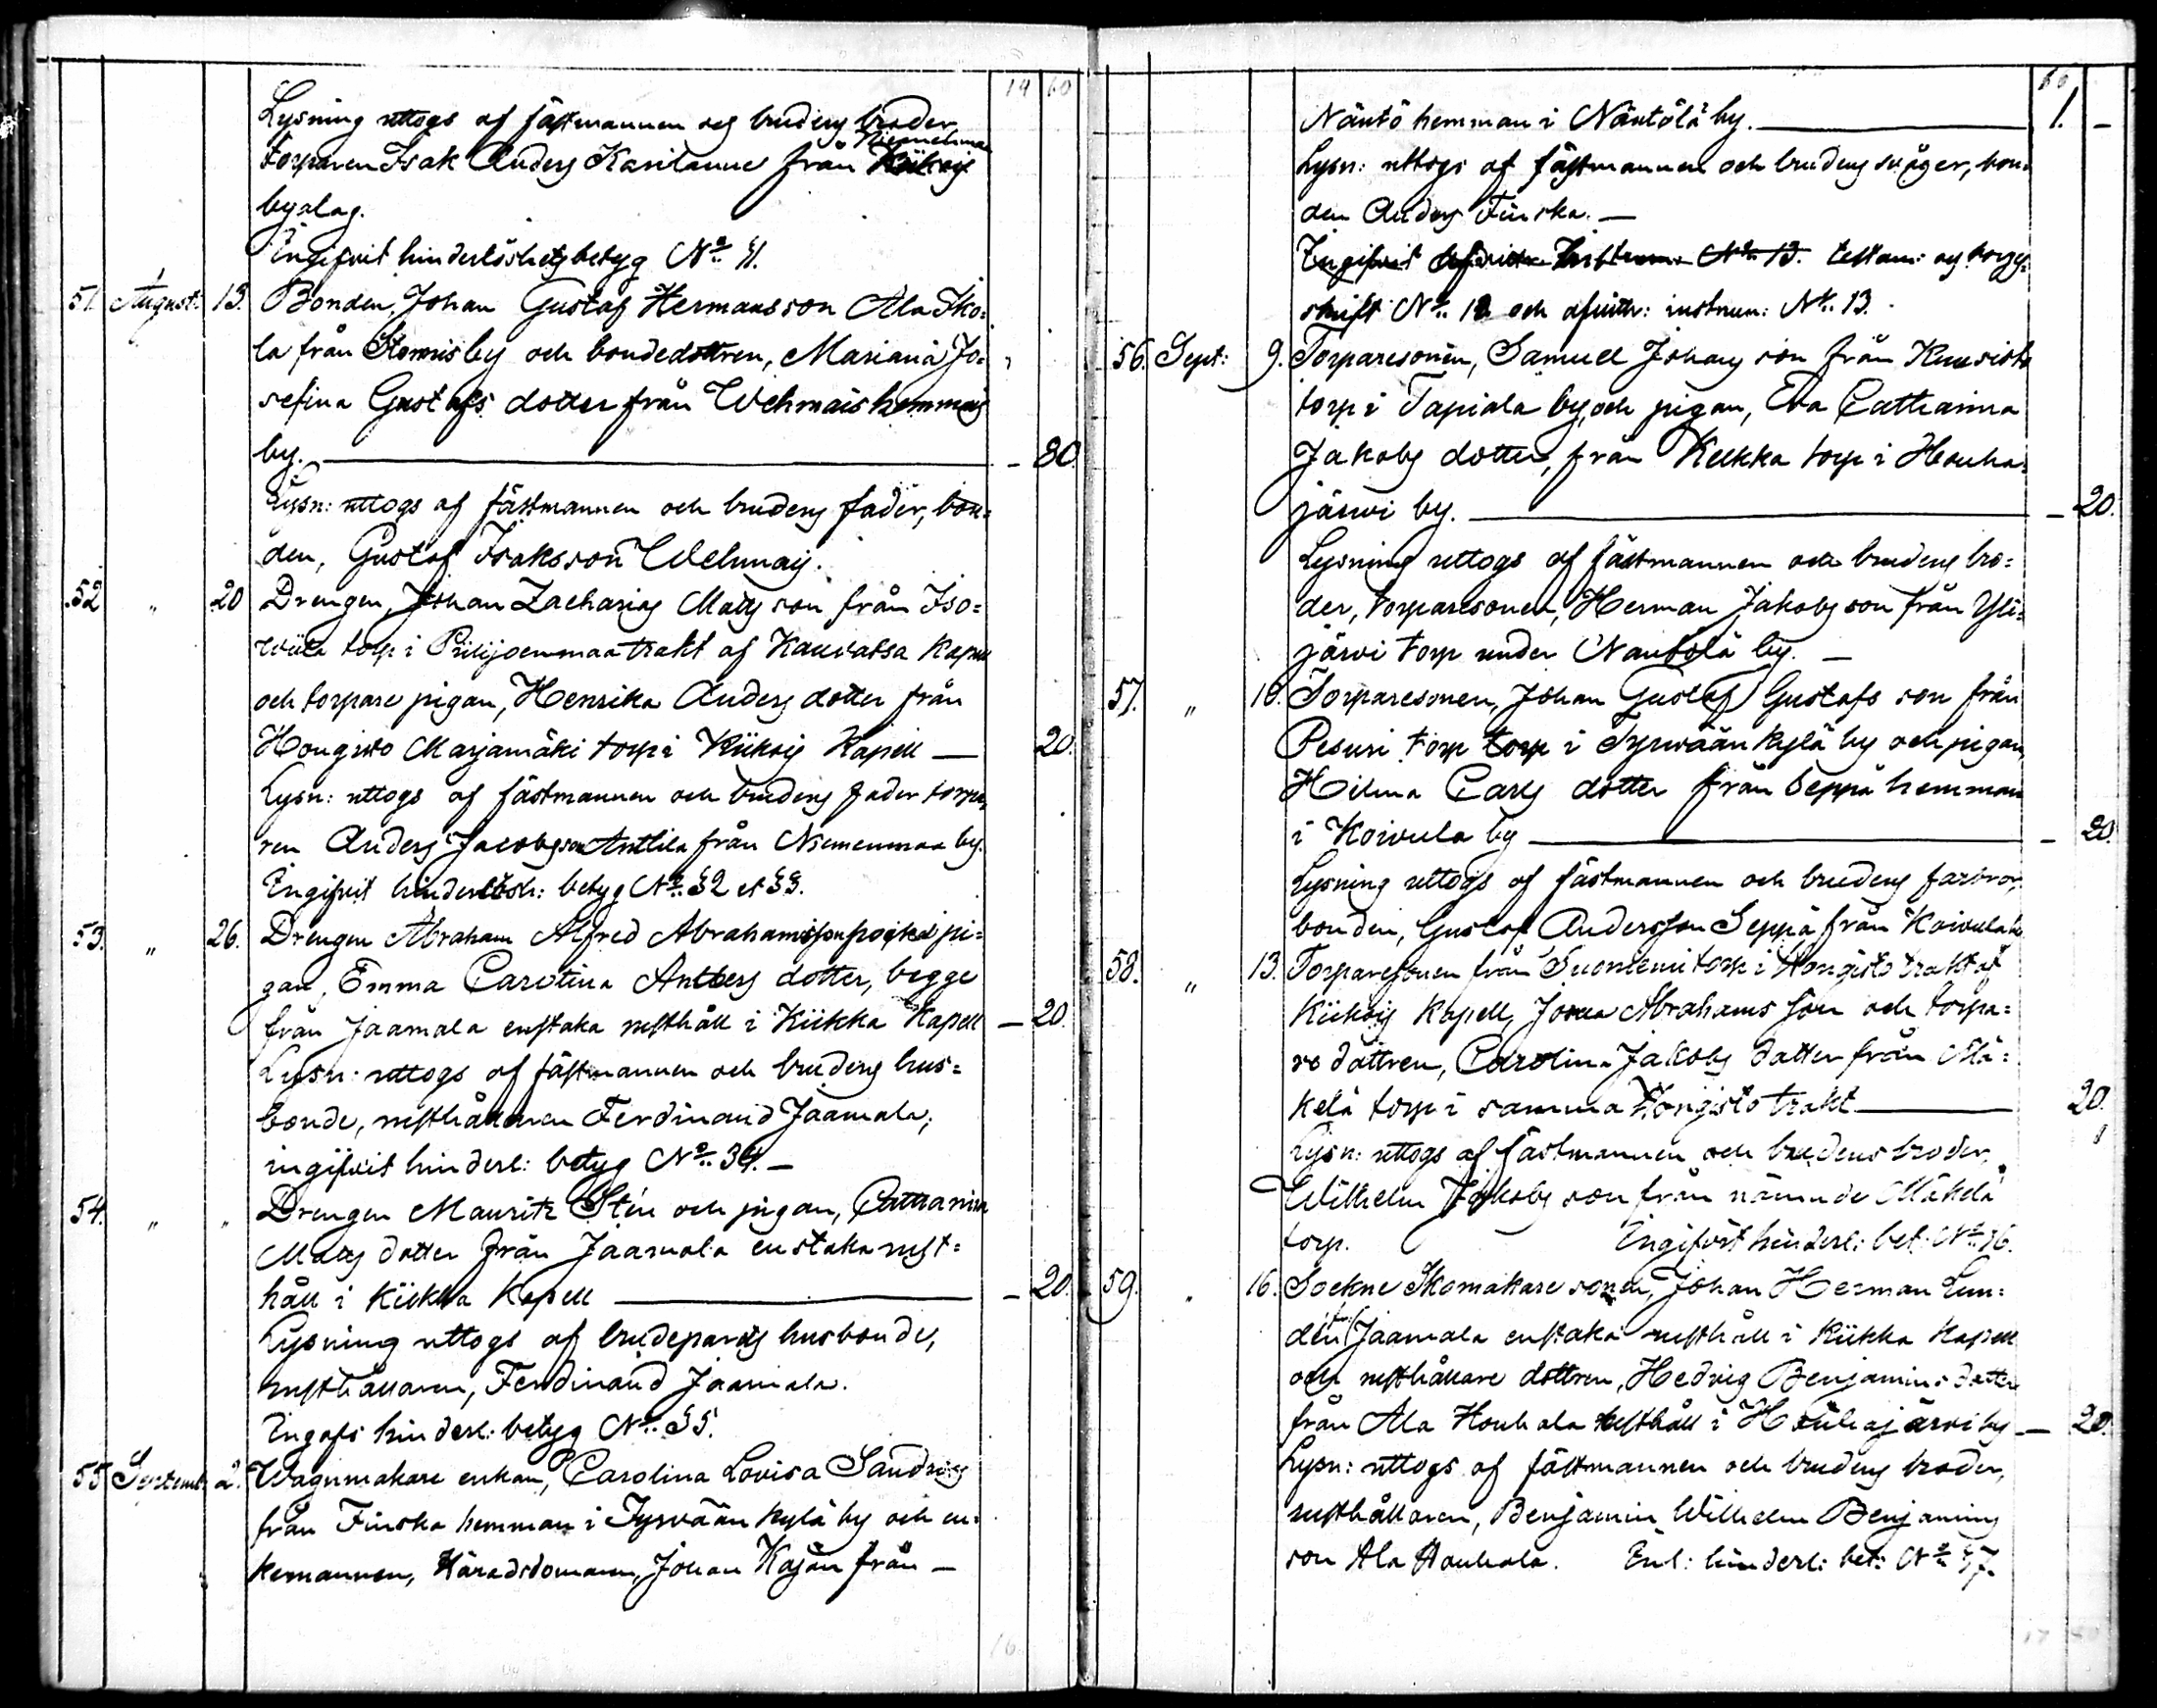 14 60
Lysning uttogs af fästmannen och brudens broder
Niemenmaa
torparen Isak Anders Karilanne från Kiikois
byalag.
Ingifvit hinderlöshetsbetyg No 41.
51. August: 13. Bonden, Johan Gustaf Hermansson Ala Sko=
la från Stormis by och bondedottren, Mariana Jo=
sefina Gustafs dotter från Wehmais hemman
by. — 80.
Lysn: uttogs af fästmannen och brudens fader, bon=
den, Gustaf Isaksson Wehmais.
52 " 20 Drengen, Johan Zacharias Mats son från Iso=
wiita torp i Piilijoenmaa trakt af Kauvatsa Kapell
och torpare pigan, Henrika Anders dotter från
Hongisto Marjamäki torp i Kiikois Kapell — 20.
Lysn: uttogs af fästmannen och brudens fader torpa,
ren Anders Jacobsson Anttila från Niemenmaa by.
Ingifvit hinderlösh: betyg No 32 et 33.
53. " 26. Drengen Abraham Alfred Abrahamsson och pi=
gan, Emma Carolina Anders dotter, begge
från Jaamala enstaka rusthåll i Kiikka Kapell — 20.
Lysn: uttogs af fästmannen och brudens hus=
bonde, rusthållaren Ferdinand Jaamala,
ingifvit hinderl: betyg No 34. —
54. " " Drengen Mauritz Stén och pigan, Catharina
Mats dotter från Jaamala enstaka rust=
håll i Kiikka Kapell — 20.
Lysning uttogs af brudeparets husbonde,
rusthållaren, Ferdinand Jaamala.
Ingafs hinderl: betyg No 35.
55 Septemb: 2. Wagnmakare enkan, Carolina Lovisa Sandroos
från Finska hemman i Tyrvään kylä by och en=
kemannen, Häradsdomaren, Johan Kaján från —
60
Näntö hemman i Näntölä by. — 1. —
Lysn: uttogs af fästmannen och brudens svåger, bon=
den Anders Finska. —
Ingifvit afvittr: Instrum: No 13. testam: och borgs
skrift No 12 och afvittr: instrum: No 13.
56. Sept: 9. Torparesonen, Samuel Johans son från Kuusisto
torp i Tapiala by, och pigan, Eva Catharina
Jakobs dotter, från Keikka torp i Houha=
järvi by. — 20.
Lysning uttogs af fästmannen och brudens bro=
der, torparesonen, Herman Jakobs son från Yli=
järvi torp under Nantolä by. —
57. " 10. Torparesonen, Johan Gustaf Gustafs son från
Pesuri torp torp i Tyrwään kylä by och pigan,
Hilma Carls dotter från Seppä hemman
i Koivula by — 20.
Lysning uttogs af fästmannen och brudens farbror,
bonden, Gustaf Andersson Seppä från Koivula by
58. " 13. Torparesonen från Suoniemi torp i Hongisto trakt af
Kiikois Kapell, Josua Abrahams son och torpa=
re dottren, Carolina Jakobs dotter från Mä=
kelä torp i samma Hongisto trakt — 20.
Lysn: uttogs af fästmannen och brudens broder,
Wilhelm Jakobs son från nämnde Mäkelä
torp. Ingifvit hinderl: bet: No 36.
59. " 16. Sockne Skomakare sonen, Johan Herman Lun=
dén fr: Jaamala enstaka rusthåll i Kiikka Kapell
och rusthållare dottren, Hedvig Benjamins dotter
från Ala Houhala rusthåll i Houhajärvi by — 20.
Lysn: uttogs af fästmannen och brudens broder,
rusthållaren, Benjamin Wilhelm Benjamins
son Ala Houhala. Enl: hinderl: bet: No 37.
16
17 40